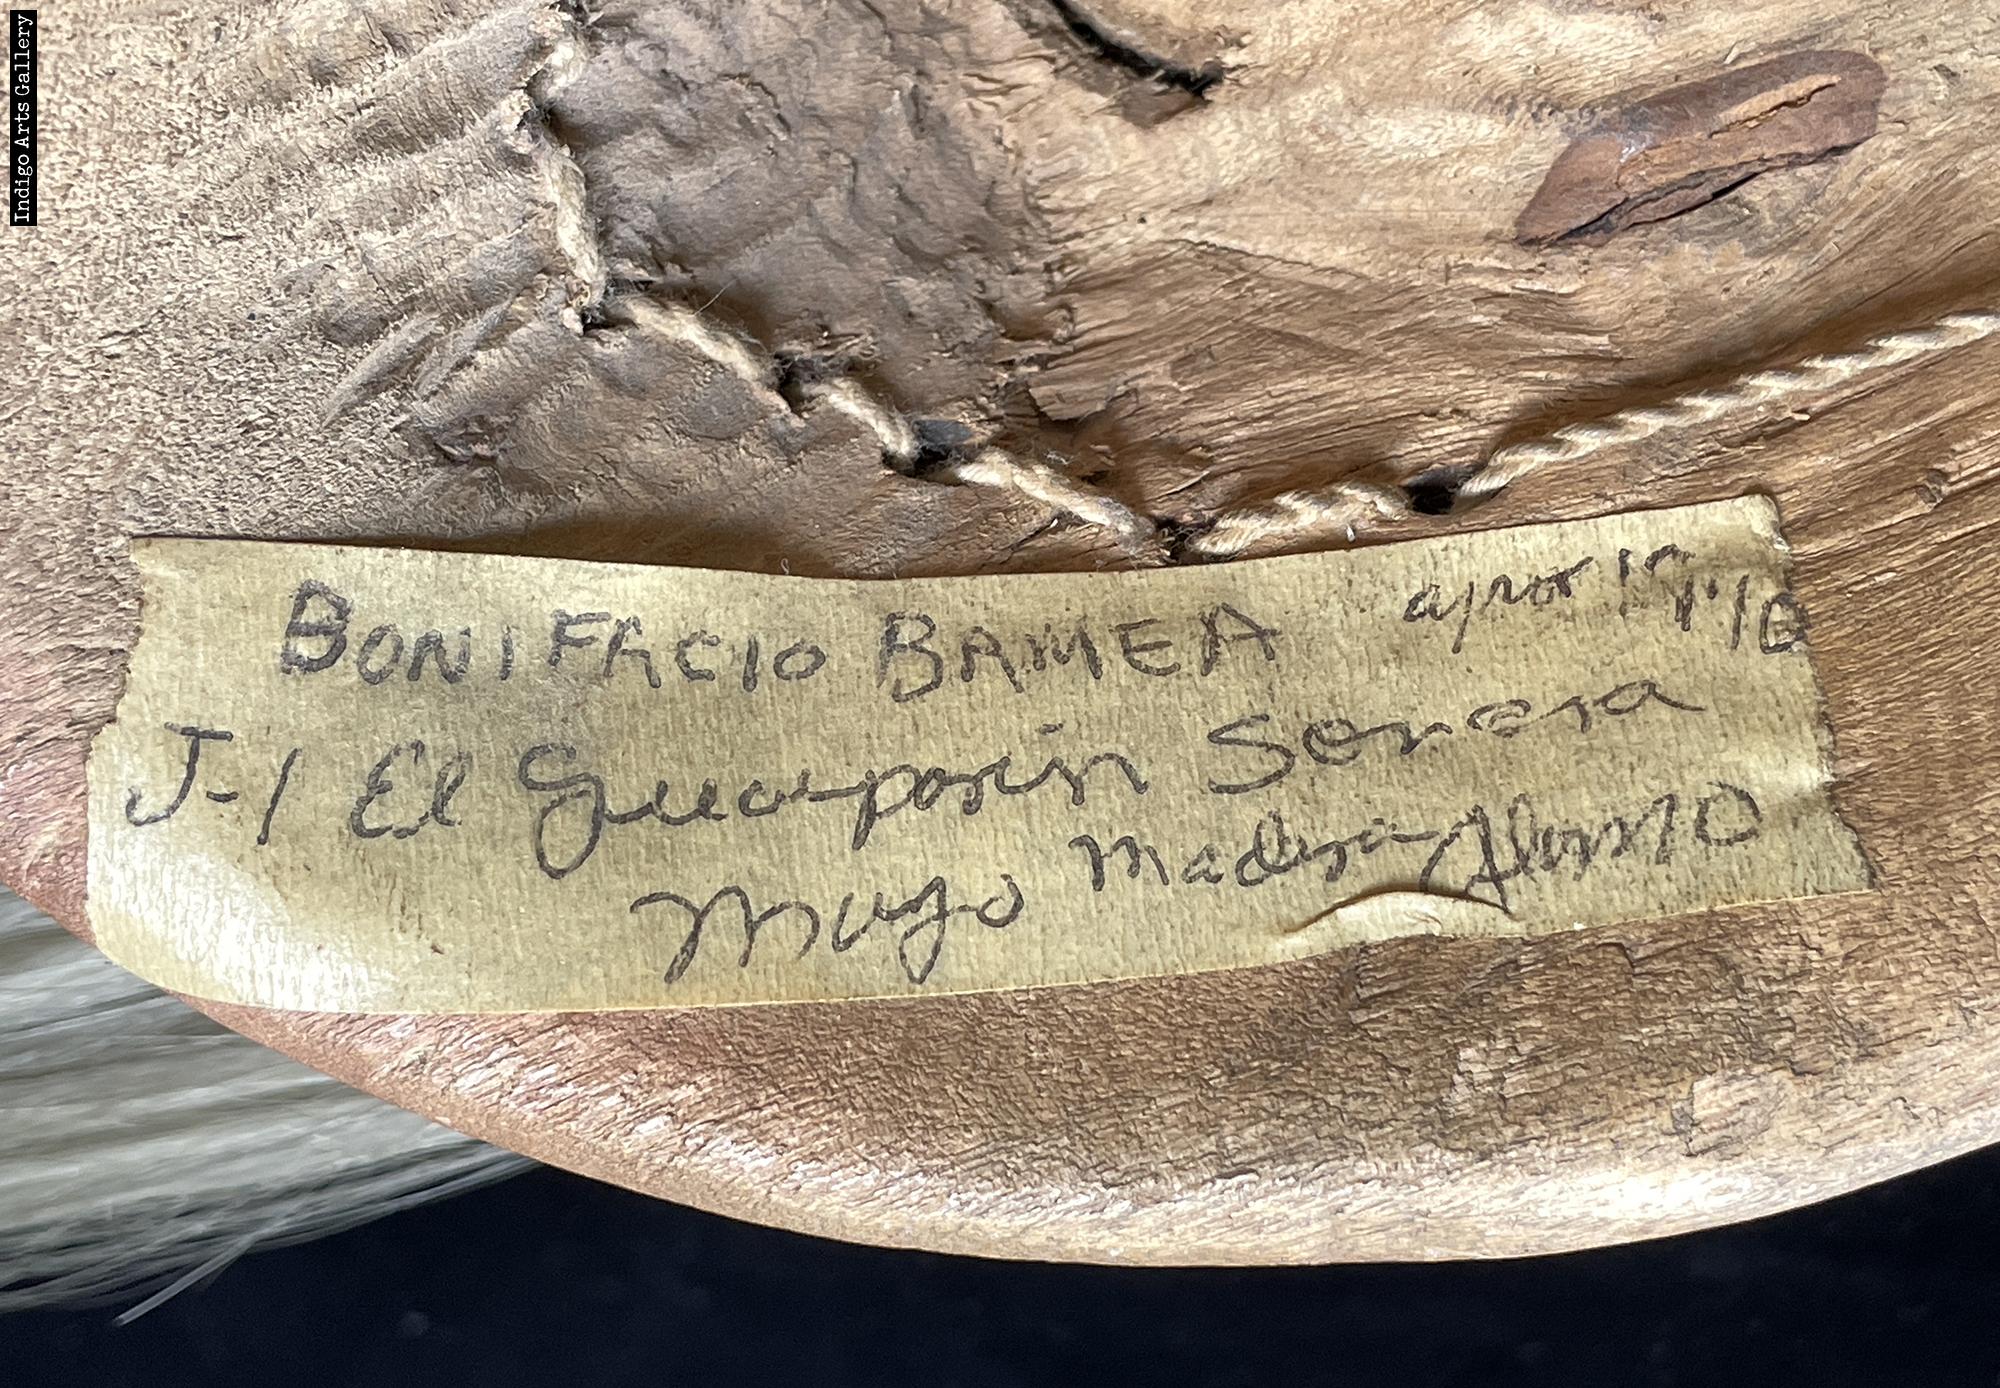 Indigo Arts Gallery
BONIFACIO BAMEA
J-1 El Guayparin Sonora
Mayo Madera Alamo